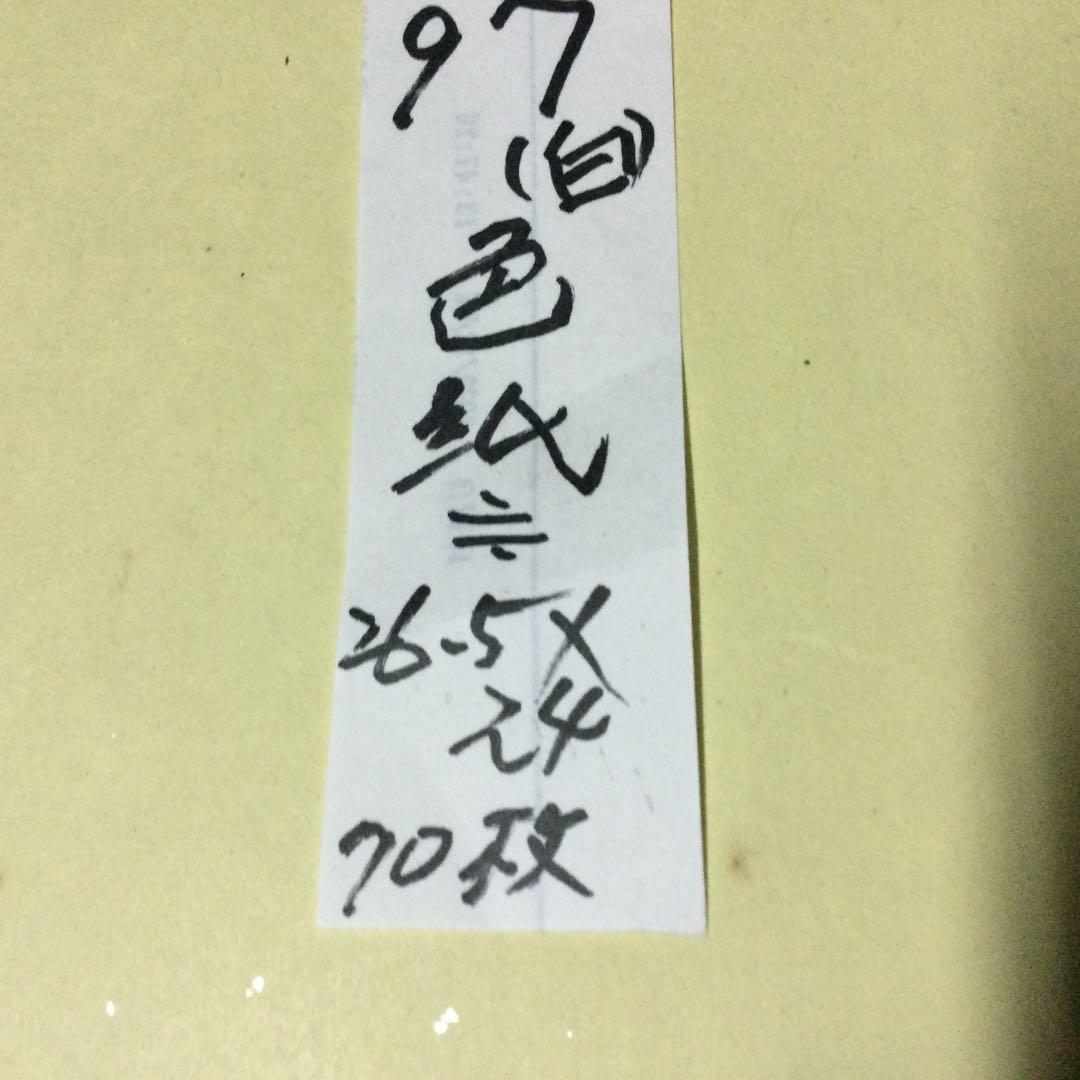 97
(白)
色
紙
≒
26.5×
24
70枚